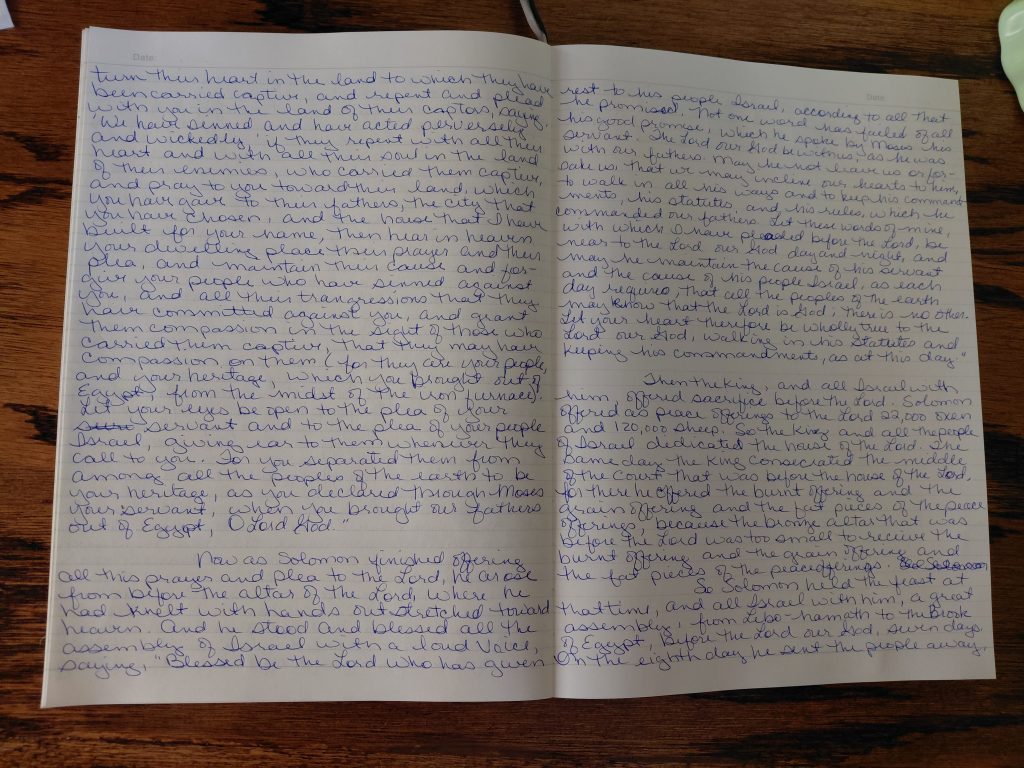 Date:
turn their heart in the land to which they have
been carried captive, and repent and plead
with you in the land of their captors, saying,
'We have sinned and have acted perversely
and wickedly,' if they repent with all their
heart and with all their soul in the land
of their enemies, who carried them captive,
and pray to you toward their land, which
you have gave to their fathers, the city that
you have chosen, and the house that I have
built for your name, then hear in heaven
your dwelling place their prayer and their
plea, and maintain their cause and for-
give your people who have sinned against
you, and all their trangressions that they
have committed against you, and grant
them compassion in the sight of those who
carried them captive, that they may have
compassion on them (for they are your people,
and your heritage, which you brought out of
Egypt, from the midst of the iron furnace).
Let your eyes be open to the plea of your
servant and to the plea of your people
Israel, giving ear to them whenever they
call to you. For you separated them from
among all the peoples of the earth to be
your heritage, as you declared through Moses
your servant, when you brought our fathers
out of Egypt, O Lord God."
Now as Solomon finished offering
all this prayer and plea to the Lord, he arose
from before the altar of the Lord, where he
had knelt with hands outstretched toward
heaven. And he stood and blessed all the
assembly of Israel with a loud voice,
saying, "Blessed be the Lord who has given
Date
rest to his people Israel, according to all that
he promised. Not one word has failed of all
his good promise, which he spoke by Moses his
servant. The Lord our God be with us, as he was
with our fathers. May he not leave us or for-
sake us, that we may incline our hearts to him,
to walk in all his ways and to keep his command
ments, his statutes, and his rules, which he
commanded our fathers. Let these words of mine,
with which I have pleaded before the Lord, be
near to the Lord our God day and night, and
may he maintain the cause of his servant
and the cause of his people Israel, as each
day requires, that all the peoples of the earth
may know that the Lord is God; there is no other.
Let your heart therefore be wholly true to the
Lord our God, walking in his statutes and
keeping his commandments, as at this day."
Then the King, and all Israel with
him, offered sacrifice before the Lord. Solomon
offered as peace offerings to the Lord 22,000 oxen
and 120,000 sheep. So the King and all the people
of Israel dedicated the house of the Lord. The
same day the King consecrated the middle
of the Court that was before the house of the Lord,
for there he offered the burnt offering and the
grain offering and the fat pieces of the peace
offerings, because the bronze altar that was
before the Lord was too small to receive the
burnt offering and the grain offering and
the fat pieces of the peace offerings. So Solomon
So Solomon held the feast at
that time, and all Israel with him, a great
assembly, from Lebo-hamath to the Brook
of Egypt, before the Lord our God, seven days.
On the eighth day he sent the people away,